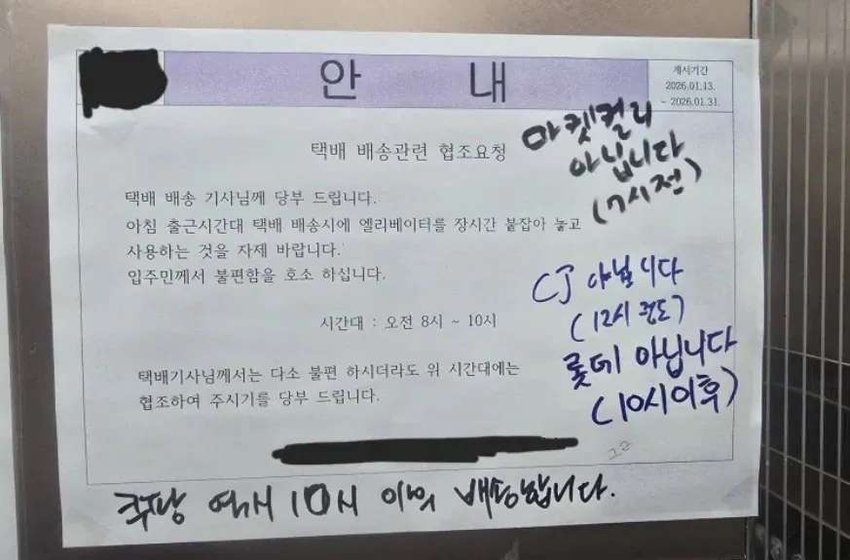 안 내
게시기간
2026.01.13.
~ 2026.01.31.
택배 배송관련 협조요청
택배 배송 기사님께 당부 드립니다.
아침 출근시간대 택배 배송시에 엘리베이터를 장시간 붙잡아 놓고
사용하는 것을 자제 바랍니다.
입주민께서 불편함을 호소 하십니다.
시간대 : 오전 8시 ~ 10시
택배기사님께서는 다소 불편 하시더라도 위 시간대에는
협조하여 주시기를 당부 드립니다.
마켓컬리
아닙니다
(7시전)
CJ 아닙니다
(12시 정도)
롯데 아닙니다
(10시이후)
ㄱㄱ
쿠팡 역시 10시 이외 배송합니다.